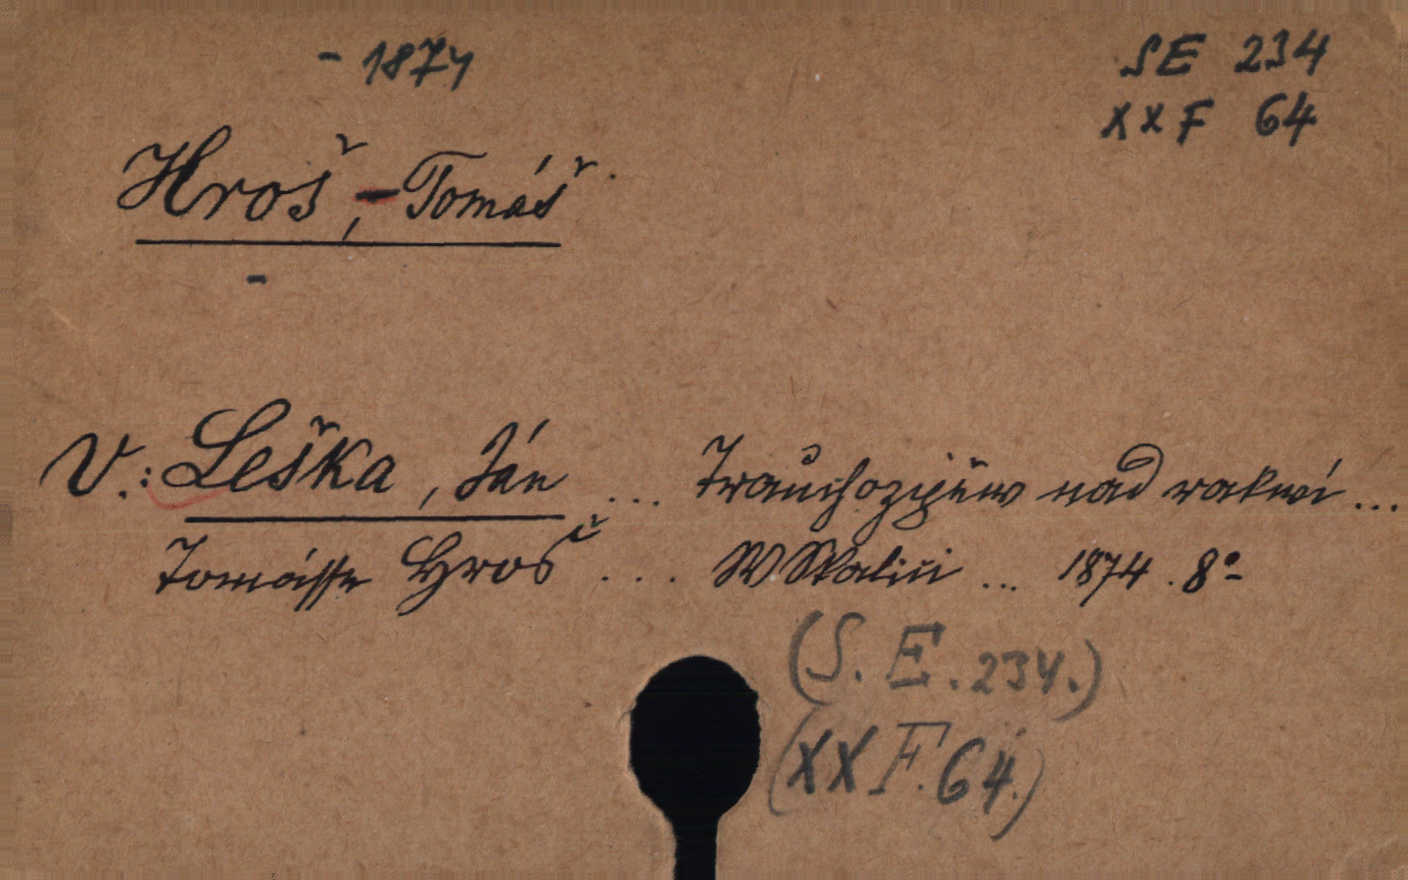 - 1874
SE 234
XXF 64
Hroš, - Tomáš.
-
V.: Leška, Ján ... Trauchozpěw nad rakwí ...
Tomásse Hroš .... W Skalici ... 1874. 8°
(S. E. 234.)
(XX F. 64.)